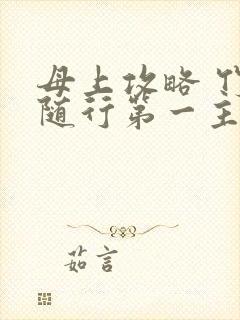 母上攻略
随行第一主
茹言